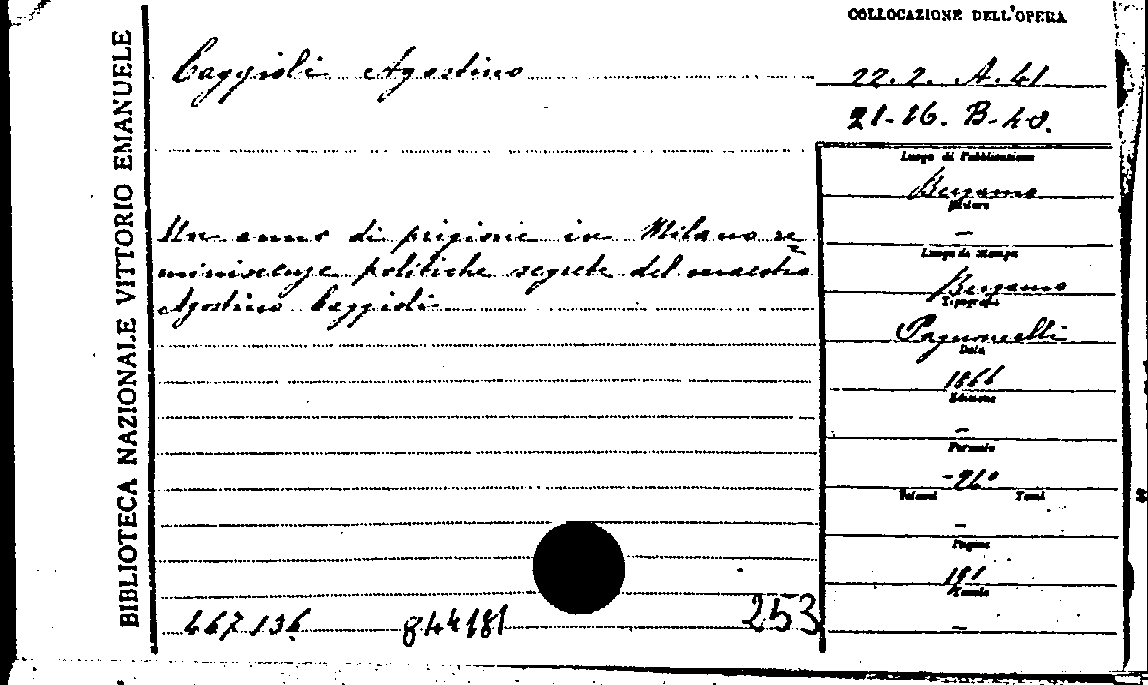 COLLOCAZIONE DELL'OPERA
BIBLIOTECA NAZIONALE VITTORIO EMANUELE
Caggioli Agostino
22.2. A.41
21-16. B-40.
Luogo di Pubblicazione
Bergamo
Editore
—
Luogo di stampa
Bergamo
Tipografia
Pagnoncelli
Data
1866
Edizione
—
Formato
-26°
Volumi Tomi
—
Pagine
191
Tavole
—
Un anno di prigione in Milano re
miniscenze politiche segrete del maestro
Agostino Caggioli
467136 844181 253